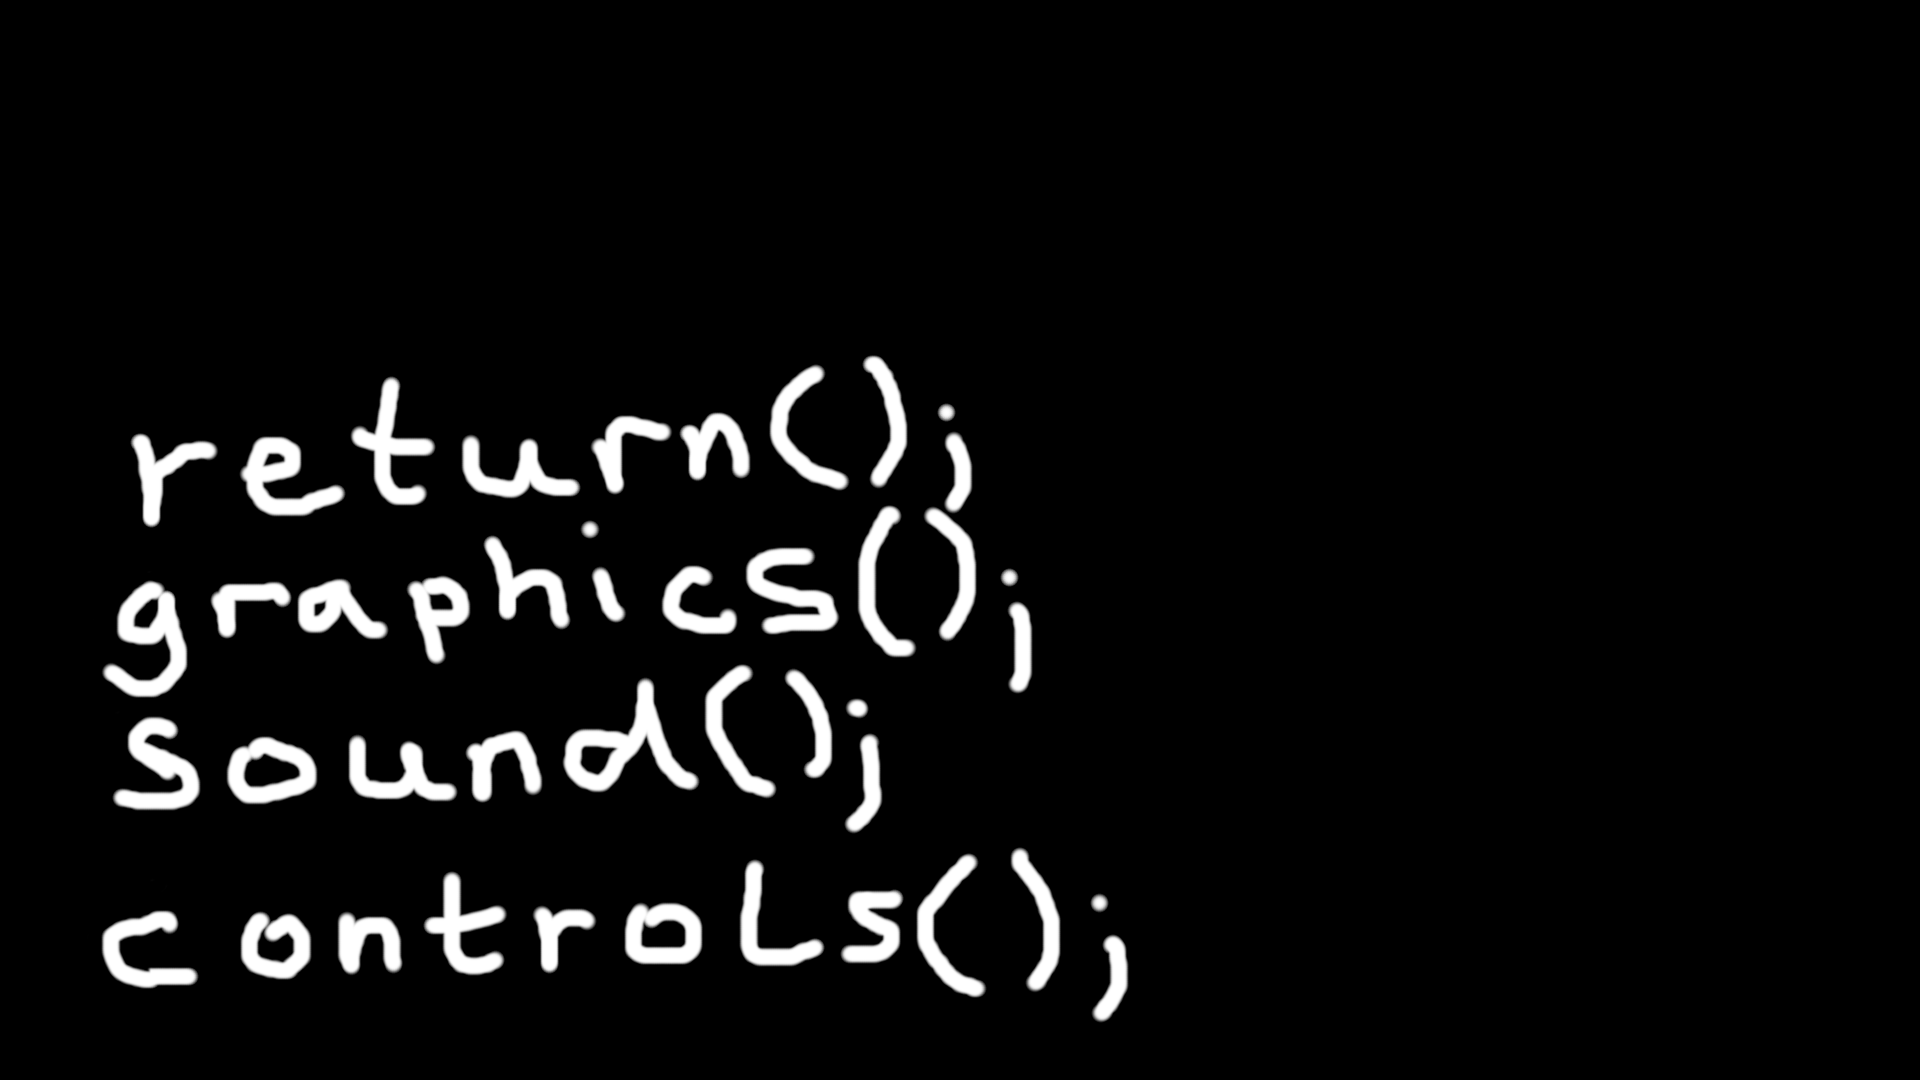 return();
graphics();
sound();
controls();